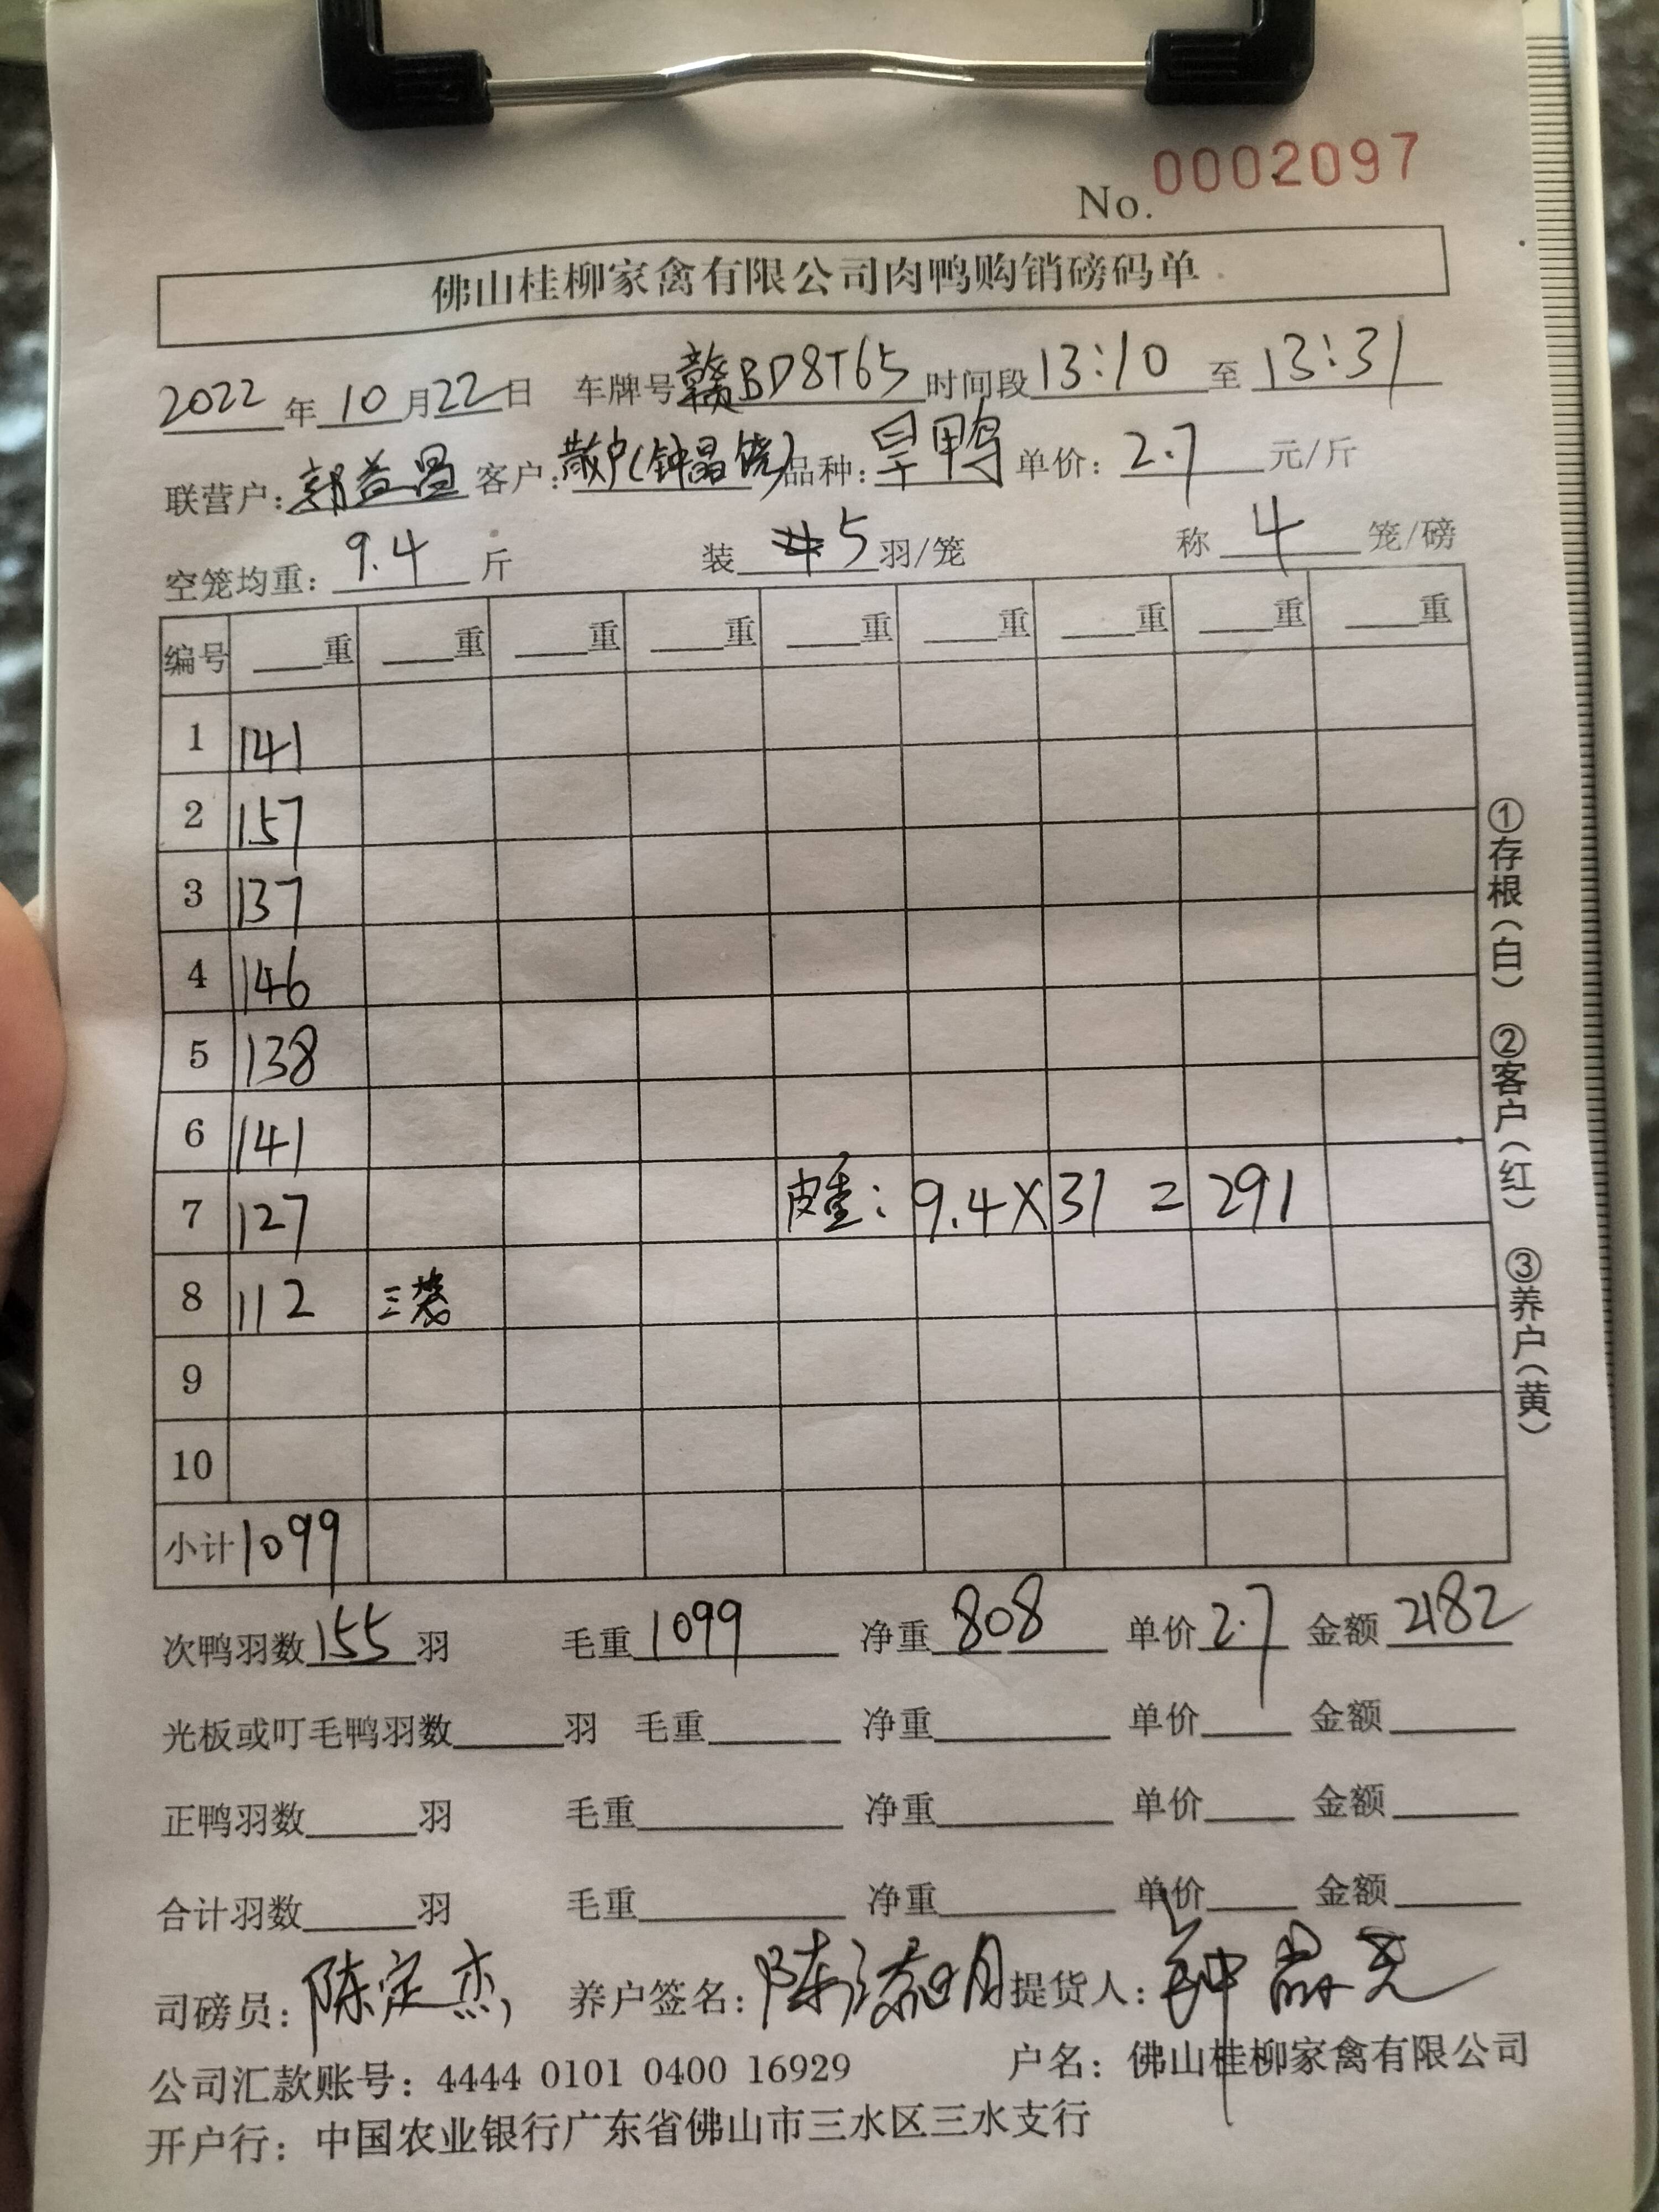 No. 0002097
佛山桂柳家禽有限公司肉鸭购销磅码单
2022年10月22日 车牌号赣BD8T65 时间段13:10至13:31
联营户:郭益昌 客户:散户(钟晶饶) 品种:旱鸭 单价:2.7元/斤
空笼均重:9.4斤 装5羽/笼 称4笼/磅
编号 重 重 重 重 重 重 重 重 重
1 141
2 157
3 137
4 146
5 138
6 141
7 127 皮重: 9.4X31=291
8 112 三笼
9
10
小计 1099
次鸭羽数155羽 毛重1099 净重808 单价2.7 金额2182
光板或叮毛鸭羽数 羽 毛重 净重 单价 金额
正鸭羽数 羽 毛重 净重 单价 金额
合计羽数 羽 毛重 净重 单价 金额
司磅员:陈定杰 养户签名:陈 明 提货人:钟
公司汇款账号:4444 0101 0400 16929 户名:佛山桂柳家禽有限公司
开户行:中国农业银行广东省佛山市三水区三水支行
①存根(白) ②客户(红) ③养户(黄)